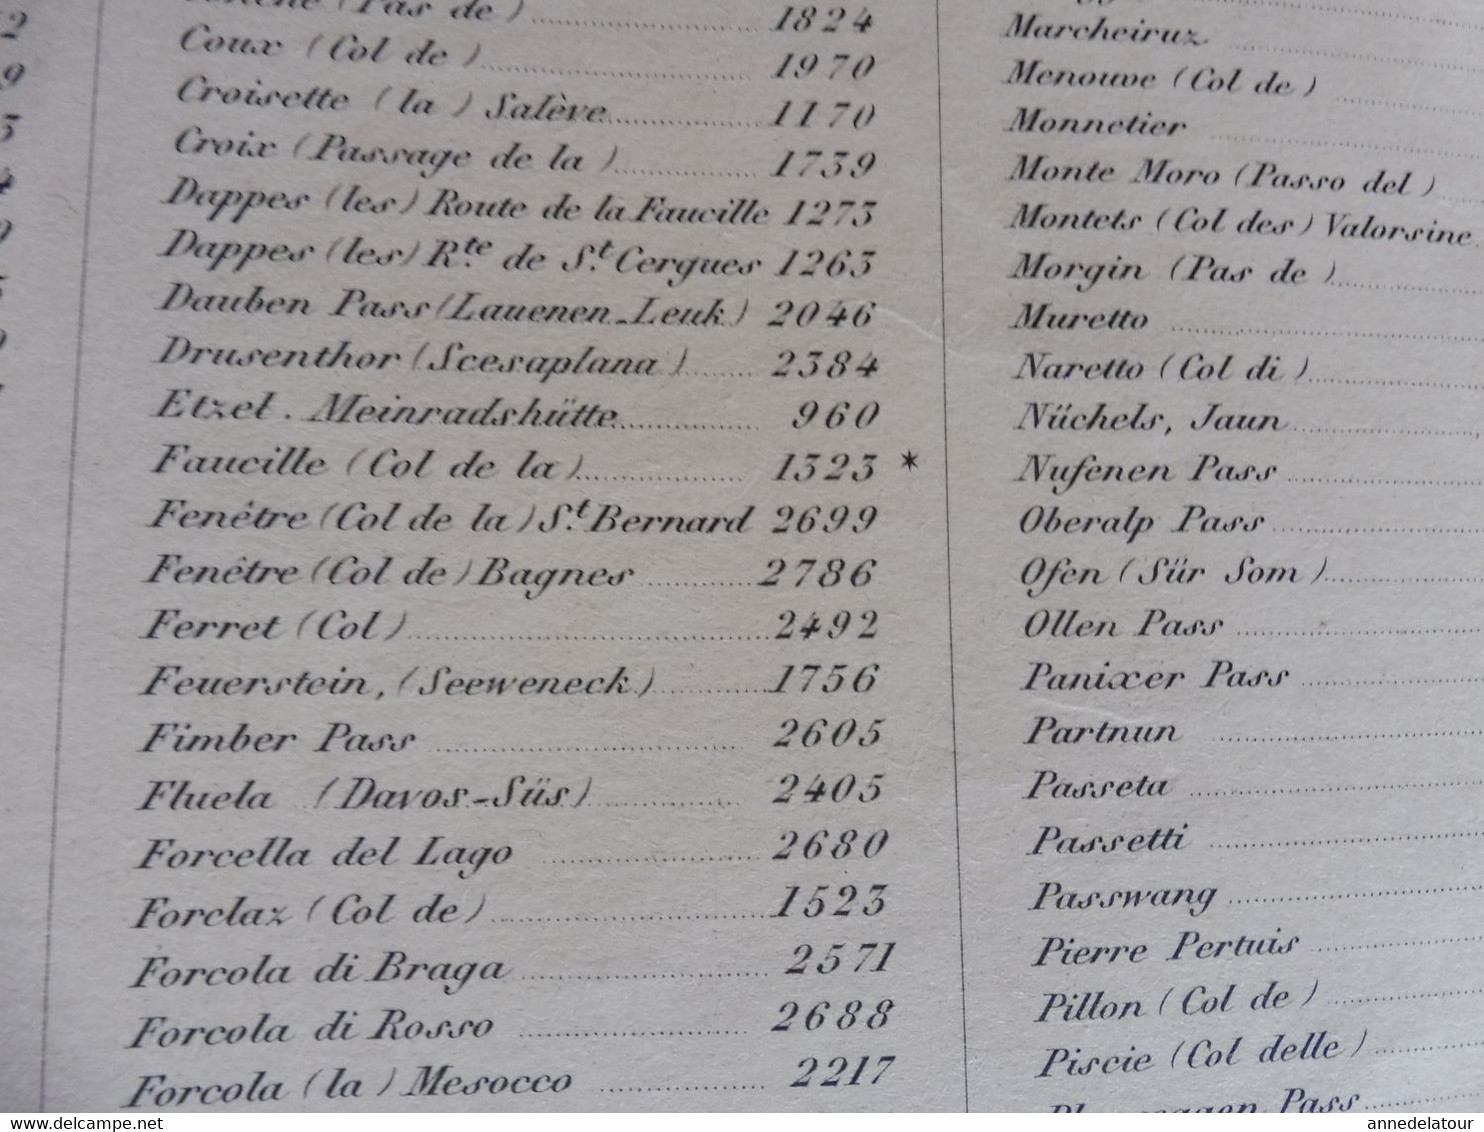 (Pas de) 1824
Coux (Col de) 1970
Croisette (la) Salève 1170
Croix (Passage de la) 1739
Dappes (les) Route de la Faucille 1273
Dappes (les) Rte. de St. Cergues 1263
Dauben Pass (Lauenen-Leuk) 2046
Drusenthor (Scesaplana) 2384
Etzel. Meinradshütte 960
Faucille (Col de la) 1323 *
Fenêtre (Col de la) St. Bernard 2699
Fenêtre (Col de) Bagnes 2786
Ferret (Col) 2492
Feuerstein, (Seeweneck) 1756
Fimber Pass 2605
Fluela (Davos-Süs) 2405
Forcella del Lago 2680
Forclaz (Col de) 1523
Forcola di Braga 2571
Forcola di Rosso 2688
Forcola (la) Mesocco 2217
Marcheiruz
Menouve (Col de)
Monnetier
Monte Moro (Passo del)
Montets (Col des) Valorsine
Morgin (Pas de)
Muretto
Naretto (Col di)
Nüchels, Jaun
Nufenen Pass
Oberalp Pass
Ofen (Sür Som)
Ollen Pass
Panixer Pass
Partnun
Passeta
Passetti
Passwang
Pierre Pertuis
Pillon (Col de)
Piscie (Col delle)
Pass
www.delcampe.net
annedelatour